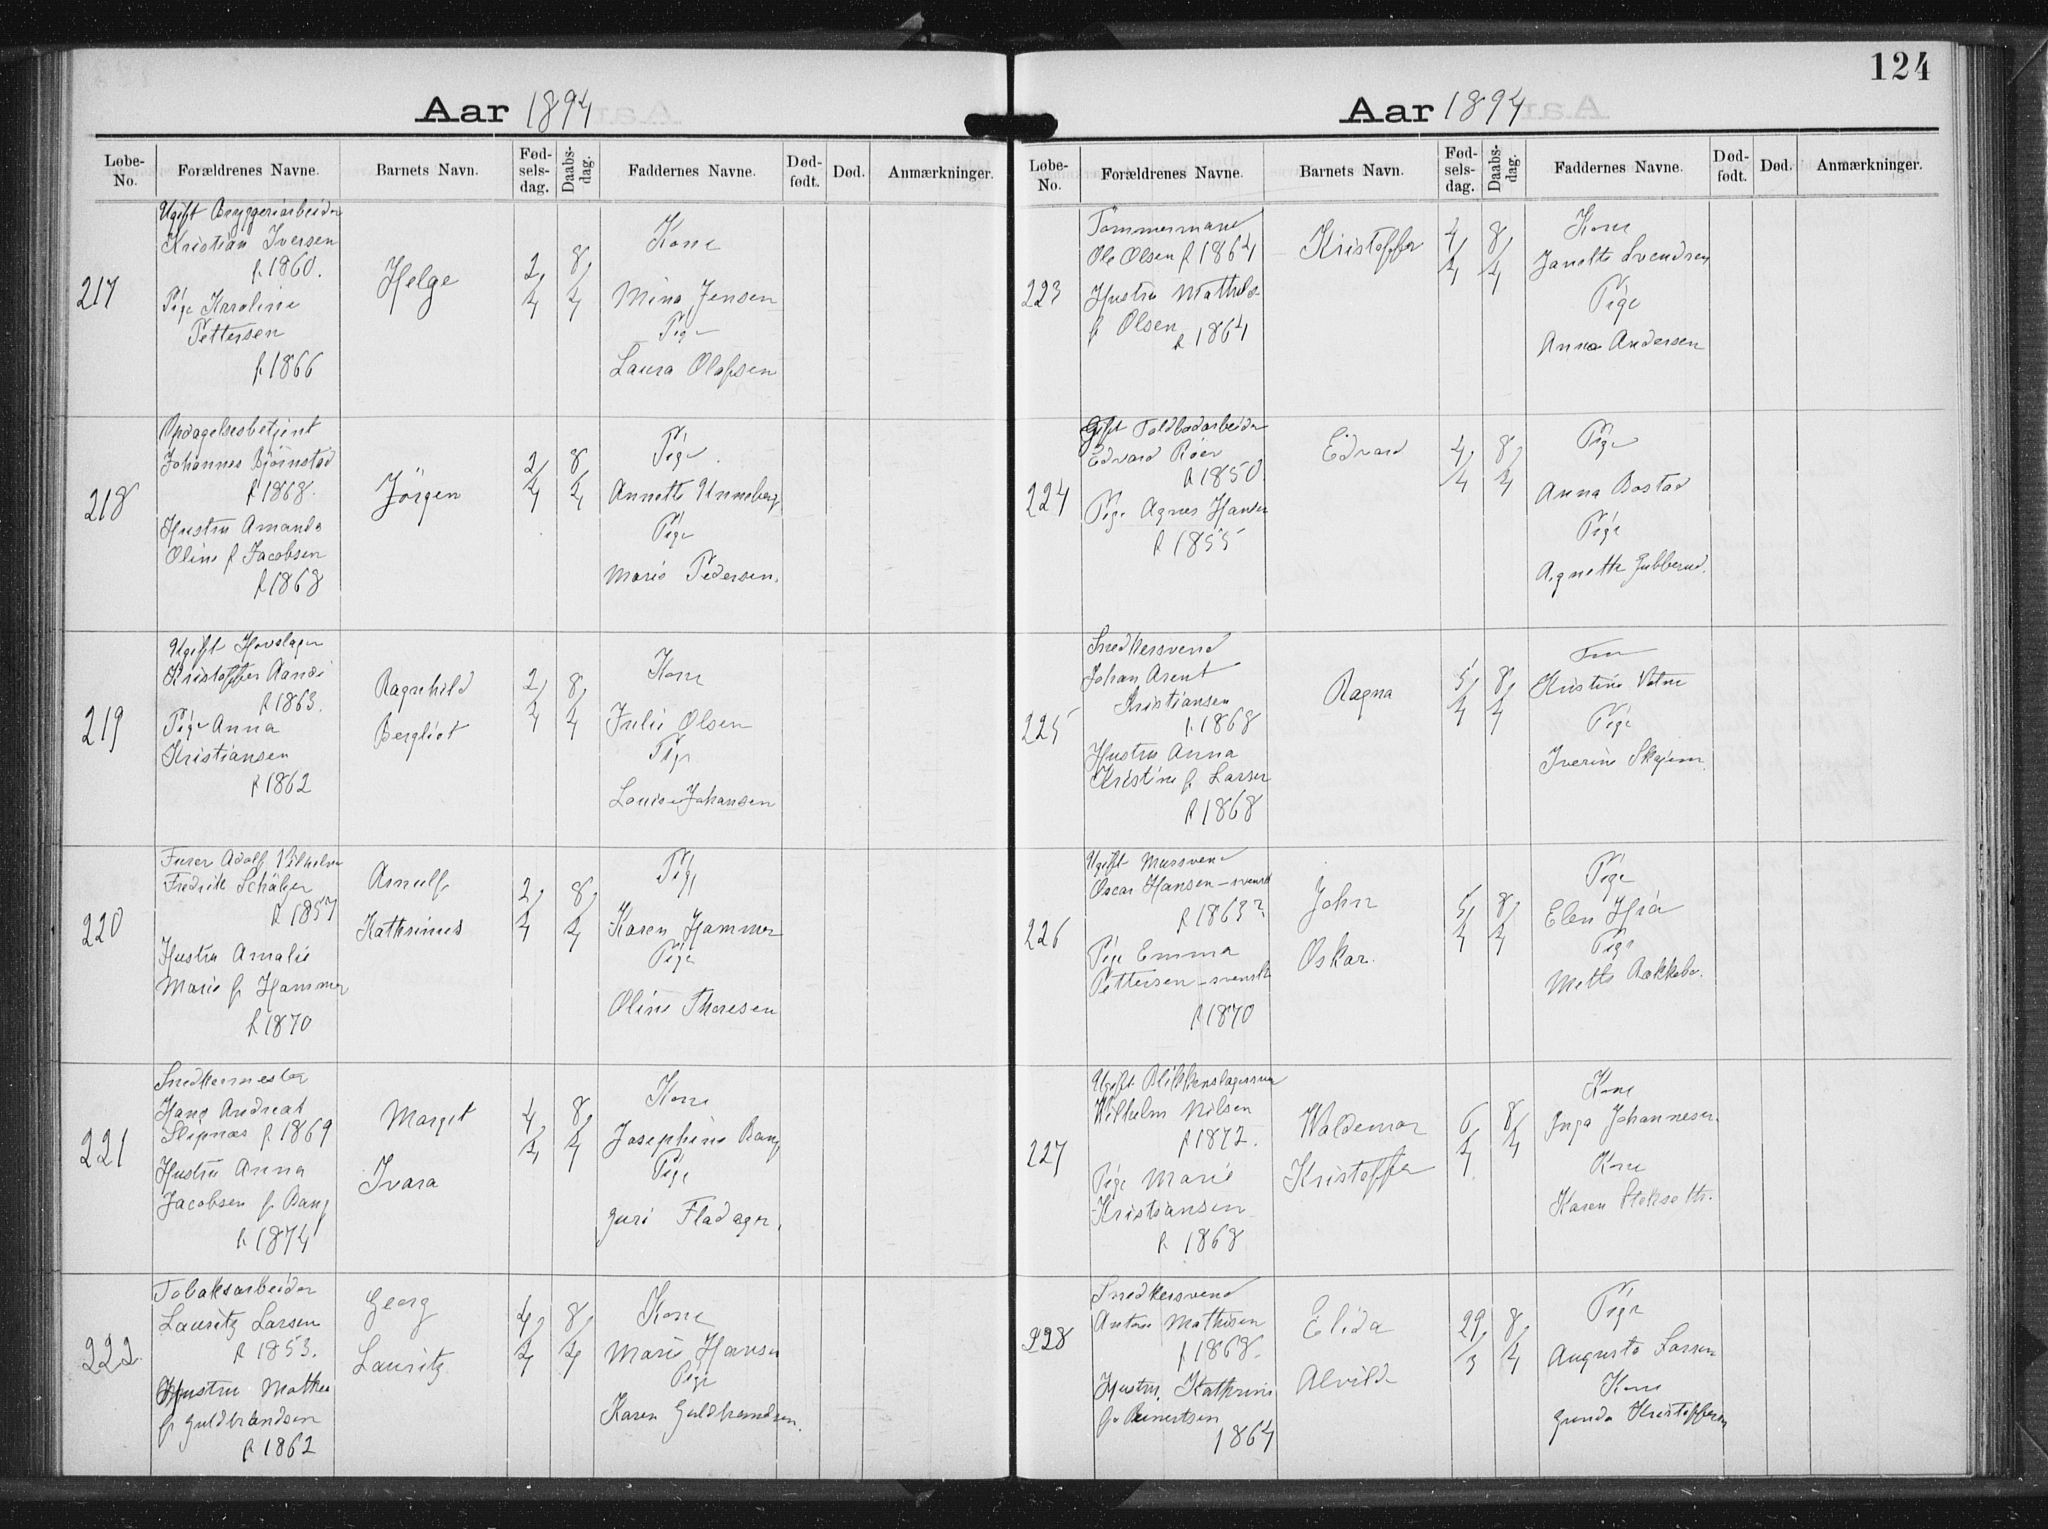 Aar 1894
Løbe-No.
Forældrenes Navne.
Barnets Navn.
Fød-sels-dag.
Daabs-dag.
Faddernes Navne.
Død-født.
Død.
Anmærkninger.
217
Ugift Bryggeriarbeider
Kristian Iversen
f. 1860.
Pige Karoline
Pettersen
f. 1866
Helge
2/4
8/4
Kone
Mina Jensen
Pige
Laura Olafsen
218
Opdagelsesbetjent
Johannes Bjørnstad
f. 1868.
Hustru Amanda
Oline f Jacobsen
f. 1868
Jörgen
2/4
8/4
Pige
Annette Unneberg
Pige
Marie Pedersen.
219
Ugift Hovslager
Kristoffer
f. 1863.
Pige Anna
Kristiansen
f. 1862
Ragnhild
Bergliot
2/4
8/4
Kone
Julie Olsen
Pige
Louise Johansen
220
Adolf Vilhelm
Fredrik
f. 1857
Hustru Amalie
Marie f. Hammer
f. 1870
Arnulf
Kathrinus
2/4
8/4
Pige
Karen Hammer
Pige
Oline Thoresen
221
Snedkermester
Hans Andreas
Slipnæs f. 1869
Hustru Anna
Jacobsen f. Bang
f. 1874
Margit
Ivara
4/4
8/4
Kone
Josephine Bang
Pige
Guri Fladager.
222.
Tobaksarbeider
Lauritz Larsen
f. 1853.
Hustru Mathea
f. Guldbrandsen
f. 1862
Georg
Lauritz
4/4
8/4
Kone
Marie Hansen
Pige
Karen Guldbrandsen.
124
Aar 1894
Løbe-No.
Forældrenes Navne.
Barnets Navn.
Fød-sels-dag.
Daabs-dag.
Faddernes Navne.
Død-født.
Død.
Anmærkninger.
223
Tømmermand
Ole Olsen f. 1864
Hustru Mathilde
f. Olsen
f. 1864
Kristoffer
4/4
8/4
Kone
Janette Svendsen
Pige
Anna Andersen
224
Gift Toldbodarbeider
Edvard Røer
f. 1850
Pige Agnes Hansen
f. 1855
Edvard
4/4
8/4
Pige
Anna Bostad
Pige
Agnethe Gubberud.
225
Snedkersvend
Johan Arent
Kristiansen
f. 1868
Hustru Anna
Kristine f. Larsen
f. 1868
Ragna
5/4
8/4
Kristine
Pige
Iverine
226
Ugift Mursvend
Oscar Hansen - svensk
f. 1863?
Pige Emma
Pettersen - svensk
f. 1870
John
Oskar.
5/4
8/4
Pige
Elen
Pige
Mette
227
Ugift Blikkenslagersvend
Wilhelm Nilsen
f. 1872.
Pige Marie
Kristiansen
f. 1868
Waldemar
Kristoffer
6/4
8/4
Kone
Inga Johannesen
Kone
Karen
228
Snedkersvend
Anton Mathisen
f. 1868.
Hustru Kathrine
f. Reinertsen
1864
Elida
Alvilde
29/3
8/4
Pige
Augusta Larsen
Kone
Gunda Kristoffersen